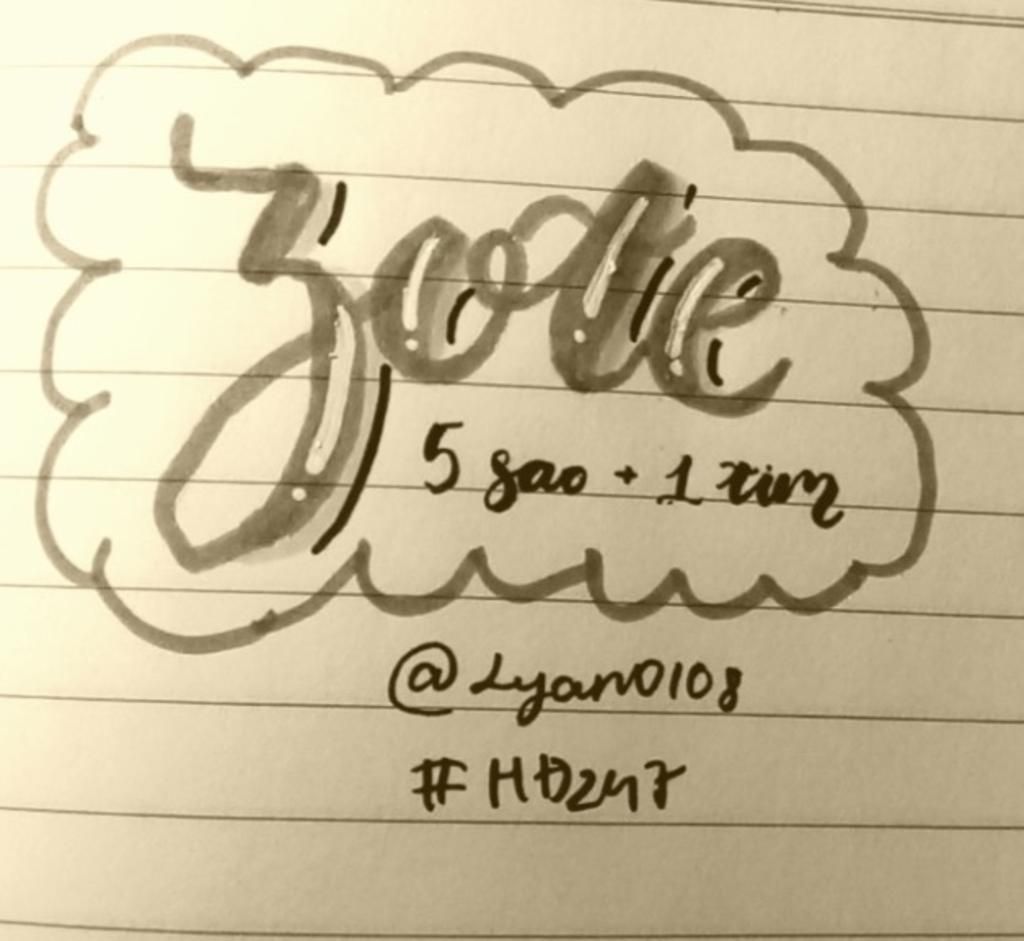 Zoie
5 sao + 1 tim
@Lyan0108
#HĐ247